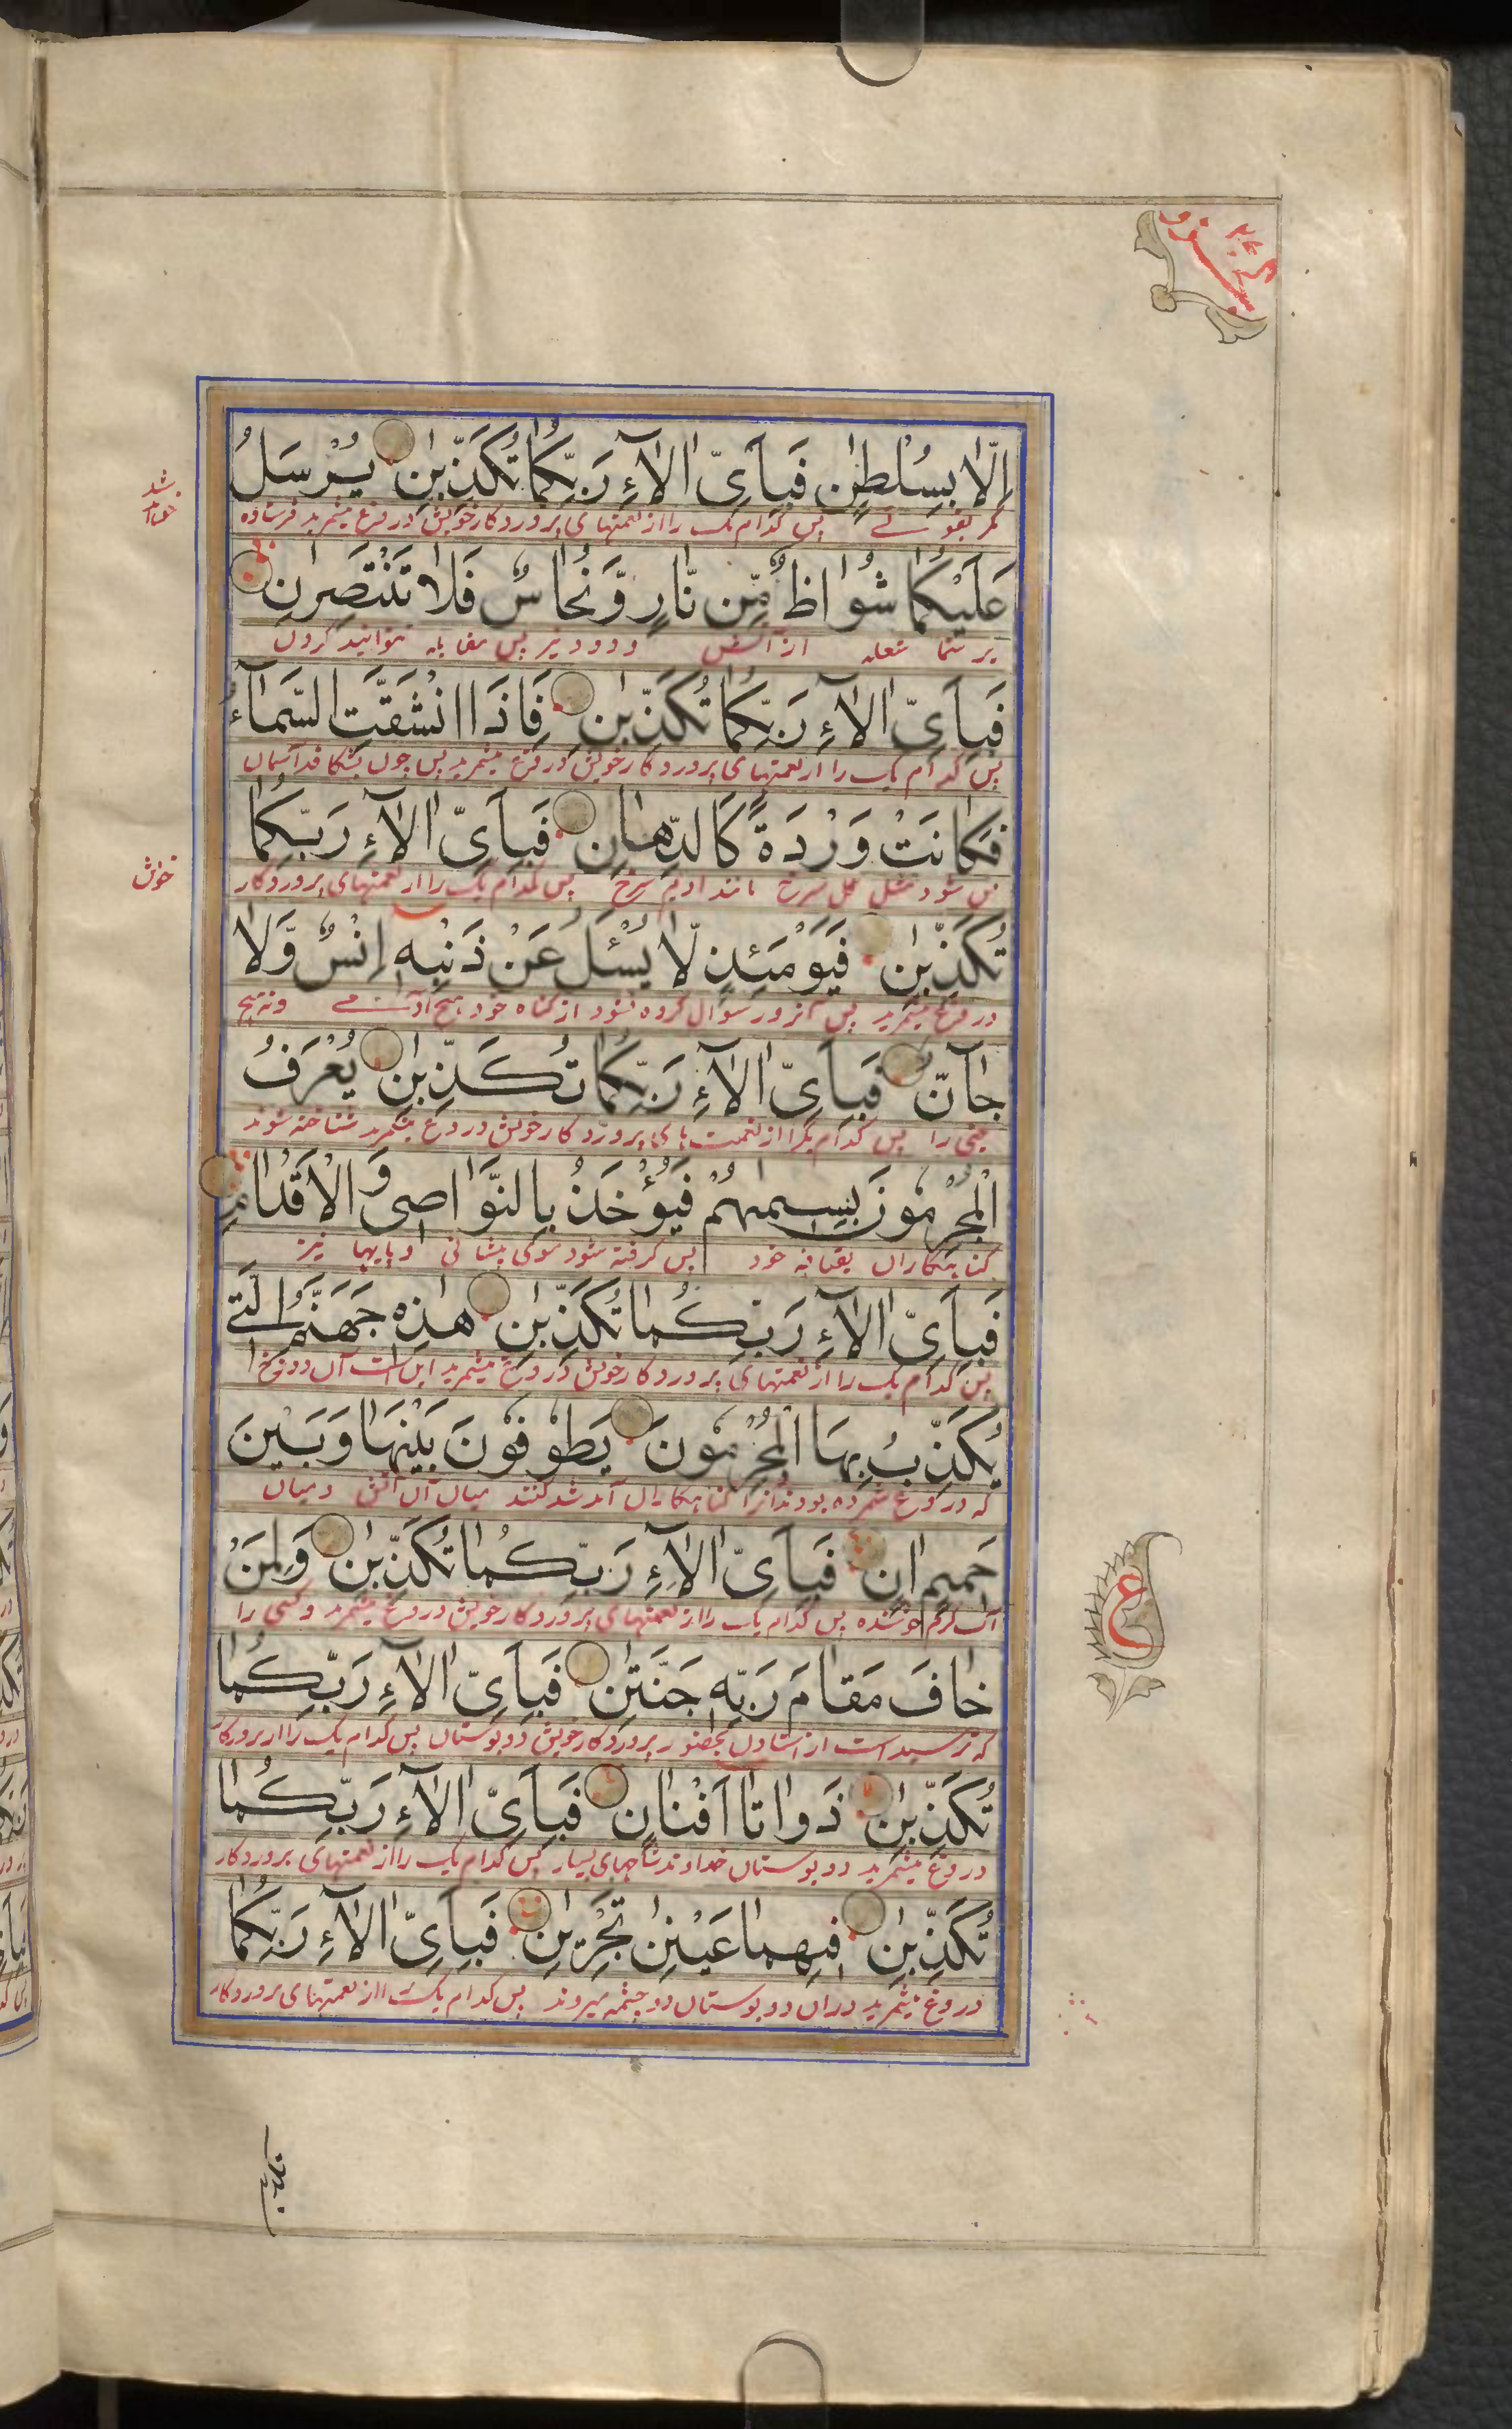 اِلَّا بِسُلْطٰنٍ فَبِاَىِّ اٰلَآءِ رَبِّكُمَا تُكَذِّبٰنِ يُرْسَلُ
مگر بقوتے پس کدام یک را از نعمتهای پروردگار خویش دروغ میشمرید فرستاده
شد
خواهد
عَلَيْكُمَا شُوَاظٌ مِّن نَّارٍ وَّنُحَاسٌ فَلَا تَنْتَصِرٰنِ
بر شما شعله از آتش و دود نیز پس مقابله نتوانید کردن
فَبِاَىِّ اٰلَآءِ رَبِّكُمَا تُكَذِّبٰنِ فَاِذَا انْشَقَّتِ السَّمَآءُ
پس کدام یک را از نعمتهای پروردگار خویش دروغ میشمرید پس چون بشگافد آسمان
فَكَانَتْ وَرْدَةً كَالدِّهَانِ فَبِاَىِّ اٰلَآءِ رَبِّكُمَا
پس شود مثل گل سرخ مانند ادیم سرخ پس کدام یک را از نعمتهای پروردگار
خویش
تُكَذِّبٰنِ فَيَوْمَئِذٍ لَّا يُسْئَلُ عَنْ ذَنْبِهٖ اِنْسٌ وَّلَا
دروغ میشمرید پس آنروز سوال کرده نشود از گناه خود هیچ آدمے و نه هیچ
جَآنٌّ فَبِاَىِّ اٰلَآءِ رَبِّكُمَا تُكَذِّبٰنِ يُعْرَفُ
جنی را پس کدام یکرا از نعمت های پروردگار خویش دروغ میشمرید شناخته شوند
الْمُجْرِمُوْنَ بِسِيمٰهُمْ فَيُؤْخَذُ بِالنَّوَاصِى وَالْاَقْدَامِ
گناهگاران بقیافه خود پس گرفته شود موی پیشانی و پایها نیز
فَبِاَىِّ اٰلَآءِ رَبِّكُمَا تُكَذِّبٰنِ هٰذِهٖ جَهَنَّمُ الَّتِے
پس کدام یک را از نعمتهای پروردگار خویش دروغ میشمرید این است آن دوزخ
يُكَذِّبُ بِهَا الْمُجْرِمُوْنَ يَطُوْفُوْنَ بَيْنَهَا وَبَيْنَ
که دروغ شمرده بودند آنرا گناهگاران آمد شد کنند میان آن آتش و میان
حَمِيْمٍ اٰنٍ فَبِاَىِّ اٰلَآءِ رَبِّكُمَا تُكَذِّبٰنِ وَلِمَنْ
آب گرم جوشنده پس کدام یک را از نعمتهای پروردگار خویش دروغ میشمرید و کسی را
ع
خَافَ مَقَامَ رَبِّهٖ جَنَّتٰنِ فَبِاَىِّ اٰلَآءِ رَبِّكُمَا
که ترسیده است از استادن بحضور پروردگار خویش دو بوستان پس کدام یک را از پروردگار
تُكَذِّبٰنِ ذَوَاتَا اَفْنَانٍ فَبِاَىِّ اٰلَآءِ رَبِّكُمَا
دروغ میشمرید دو بوستان خداوند شاخهای بسیار پس کدام یک را از نعمتهای پروردگار
تُكَذِّبٰنِ فِيهِمَا عَيْنٰنِ تَجْرِيٰنِ فَبِاَىِّ اٰلَآءِ رَبِّكُمَا
دروغ میشمرید دران دو بوستان دو چشمه میروند پس کدام یک را از نعمتهای پروردگار
تكذبن